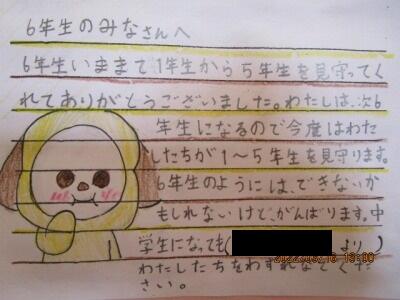 6年生のみなさんへ
6年生いままで1年生から5年生を見守ってく
れてありがとうございました。わたしは、次6
年生になるので今度はわた
したちが1～5年生を見守ります。
6年生のようには、できないか
もしれないけど、がんばります。中
学生になっても( より)
わたしたちをわすれないでくだ
さい。